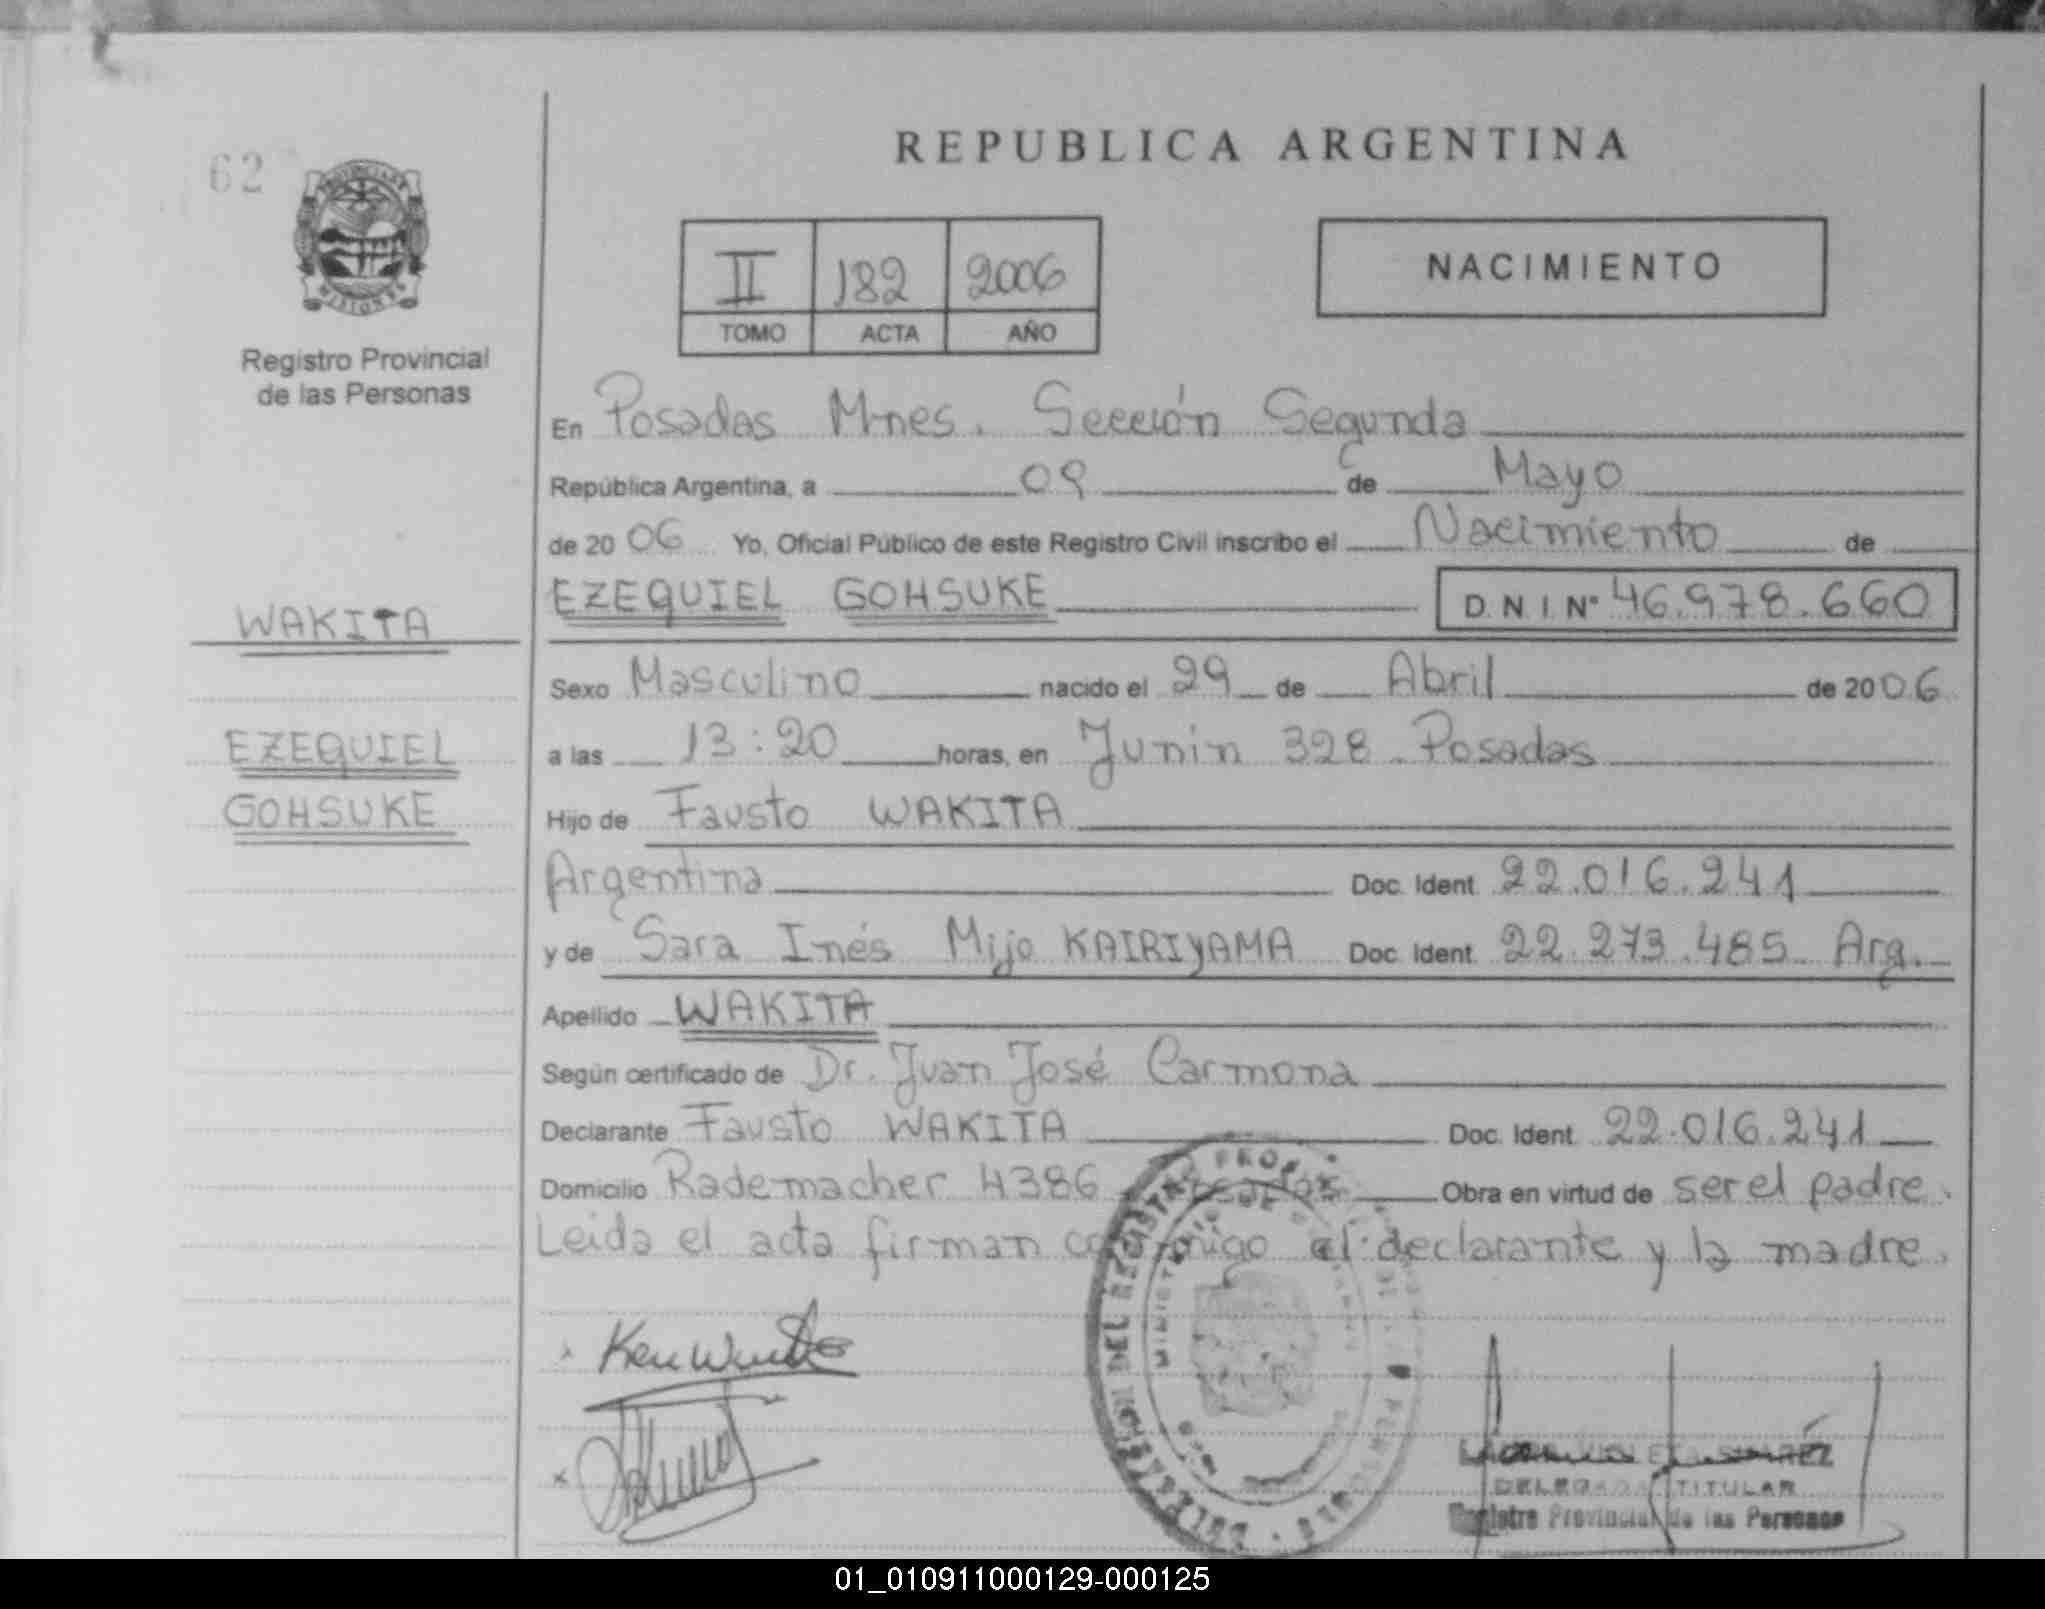 REPUBLICA ARGENTINA
62
PROVINCIA DE
MISIONES
Registro Provincial
de las Personas
II 182 2006
TOMO ACTA AÑO
NACIMIENTO
En Posadas Mnes. Sección Segunda
República Argentina, a 09 de Mayo
de 2006 Yo, Oficial Público de este Registro Civil inscribo el Nacimiento de
EZEQUIEL GOHSUKE D. N. I. Nº 46.978.660
WAKITA
Sexo Masculino nacido el 29 de Abril de 2006
EZEQUIEL
a las 13:20 horas, en Junin 328. Posadas
GOHSUKE
Hijo de Fausto WAKITA
Argentina Doc. Ident. 22.016.241
y de Sara Inés Mijo KAIRIYAMA Doc. Ident. 22.273.485 Arg.
Apellido WAKITA
Según certificado de Dr. Juan José Carmona
Declarante Fausto WAKITA Doc. Ident. 22.016.241
Domicilio Rademacher 4386 Posadas Obra en virtud de ser el padre.
Leida el acta firman conmigo el declarante y la madre.
DEL REGISTRO
DELEGADA TITULAR
Registro Provincial de las Personas
01_010911000129-000125